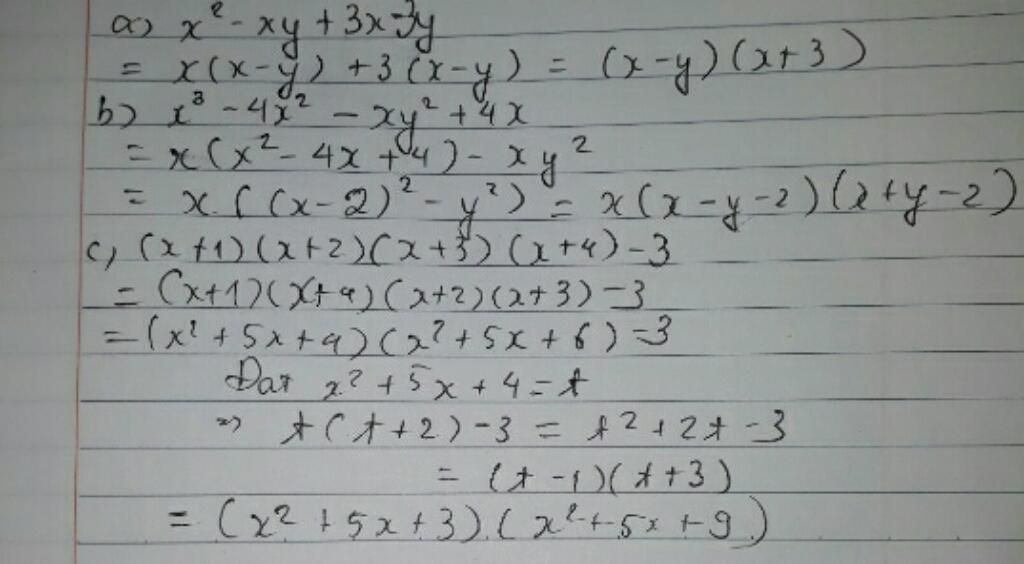 a) x² - xy + 3x - 3y
= x(x-y) + 3(x-y) = (x-y)(x+3)
b) x³ - 4x² - xy² + 4x
= x(x² - 4x + 4) - xy²
= x((x-2)² - y²) = x(x-y-2)(x+y-2)
c, (x+1)(x+2)(x+3)(x+4) - 3
= (x+1)(x+4)(x+2)(x+3) - 3
= (x² + 5x + 4)(x² + 5x + 6) - 3
Đat x² + 5x + 4 = t
=> t(t+2) - 3 = t² + 2t - 3
= (t - 1)(t + 3)
= (x² + 5x + 3).(x² + 5x + 9)